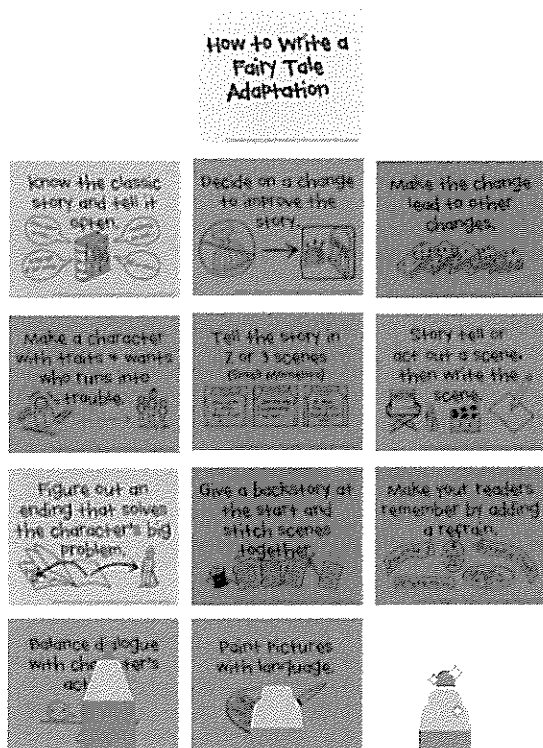 How to Write a
Fairy Tale
Adaptation
Know the classic
story and tell it
often.
Decide on a change
to improve the
story.
Make the change
lead to other
changes.
Make a character
with traits + wants
who runs into
trouble.
Tell the story in
2 or 3 scenes
(Small Moments)
Story tell or
act out a scene,
then write the
scene.
Figure out an
ending that solves
the character's big
problem.
Give a backstory at
the start and
stitch scenes
together.
Make your readers
remember by adding
a refrain.
Balance dialogue
with character's
Paint Pictures
with language.